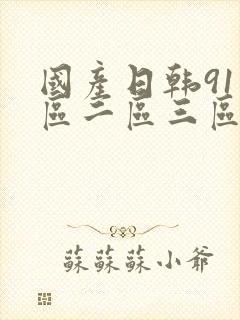 國產日韩91
區二區三區
蘇蘇蘇小爺